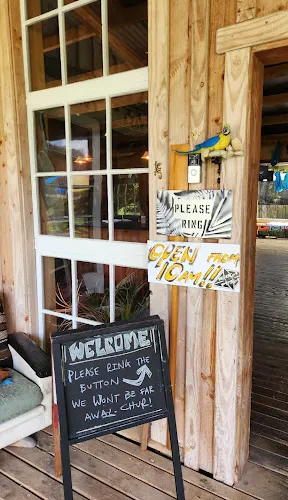 PLEASE
RING!
OPEN FROM
10AM!!
WELCOME
PLEASE RING THE
BUTTON
WE WONT BE FAR
AWAY - CHUR!